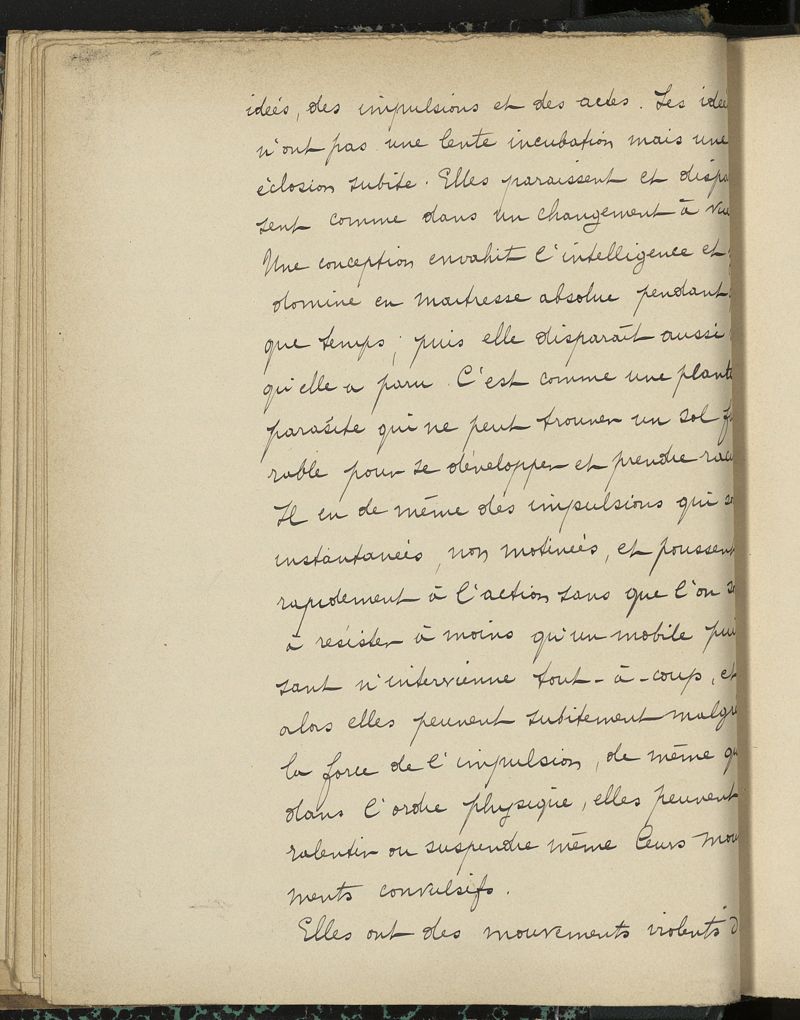 idées, des impulsions et des actes. Les idée
n'ont pas une lente incubation mais une
éclosion subite. Elles paraissent et dispa
sent comme dans un changement à vue
Une conception envahit l'intelligence et
domine en maitresse absolue pendant
que temps; puis elle disparaît aussi
qu'elle a paru. C'est comme une plante
parasite qui ne peut trouver un sol f
rable pour se développer et prendre rac
Il en de même des impulsions qui so
instantaneés, non motiveés, et poussent
rapidement à l'action sans que l'on so
à résister à moins qu'un mobile puis
sant n'intervienne tout-à-coup, et
alors elles peuvent subitement malgré
la force de l'impulsion, de même qu
dans l'ordre physique, elles peuvent
ralentir ou suspendre même leurs mou
ments convulsifs.
Elles ont des mouvements violents d